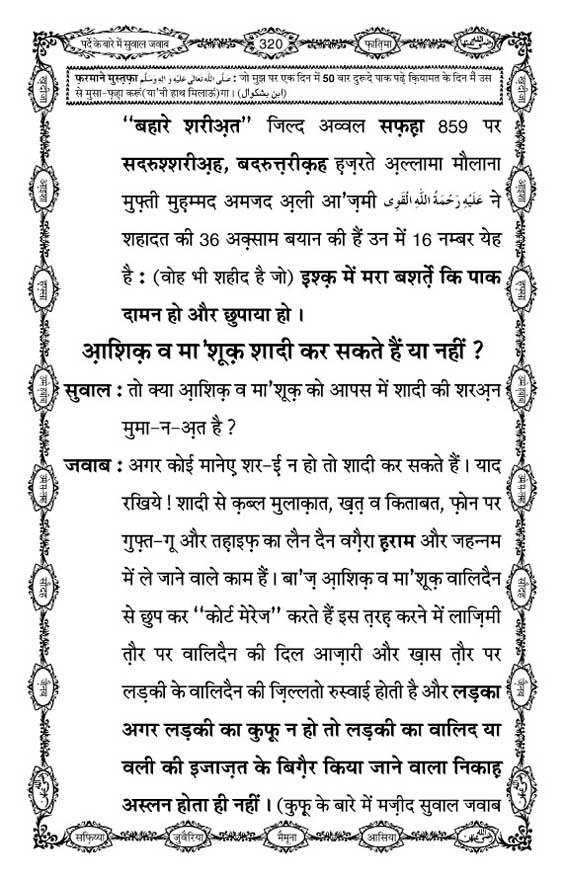 पर्दे के बारे में सुवाल जवाब
320
फ़ातिमा
फ़रमाने मुस्तफ़ा صَلَّى اللهُ تَعَالٰى عَلَيْهِ وَاٰلِهٖ وَسَلَّم : जो मुझ पर एक दिन में 50 बार दुरूदे पाक पढ़े क़ियामत के दिन मैं उस
से मुसा-फ़हा करूं(या'नी हाथ मिलाऊं)गा । (ابن بشكوال)
‘‘बहारे शरीअ़त’’ जिल्द अव्वल सफ़ह़ा 859 पर
सदरुश्शरीअ़ह, बदरुत्तरीक़ह ह़ज़रते अ़ल्लामा मौलाना
मुफ़्ती मुह़म्मद अमजद अ़ली आ'ज़मी عَلَيْهِ رَحْمَةُ اللهِ الْقَوِى ने
शहादत की 36 अक़्साम बयान की हैं उन में 16 नम्बर येह
है : (वोह भी शहीद है जो) इ़श्क़ में मरा बशर्ते़ कि पाक
दामन हो और छुपाया हो ।
आ़शिक़ व मा'शूक़ शादी कर सकते हैं या नहीं ?
सुवाल : तो क्या आ़शिक़ व मा'शूक़ को आपस में शादी की शरअ़न
मुमा-न-अ़त है ?
जवाब : अगर कोई मानेए़ शर-ई़ न हो तो शादी कर सकते हैं । याद
रखिये ! शादी से क़ब्ल मुलाक़ात, ख़त़ व किताबत, फ़ोन पर
गुफ़्त-गू और तह़ाइफ़ का लैन दैन वग़ैरा ह़राम और जहन्नम
में ले जाने वाले काम हैं । बा'ज़ आ़शिक़ व मा'शूक़ वालिदैन
से छुप कर ‘‘कोर्ट मेरेज’’ करते हैं इस त़रह़ करने में लाज़िमी
त़ौर पर वालिदैन की दिल आज़ारी और ख़ास त़ौर पर
लड़की के वालिदैन की ज़िल्लतो रुस्वाई होती है और लड़का
अगर लड़की का कुफ़ू न हो तो लड़की का वालिद या
वली की इजाज़त के बिग़ैर किया जाने वाला निकाह़
अस्लन होता ही नहीं । (कुफ़ू के बारे में मज़ीद सुवाल जवाब
सफ़िय्या
जुवैरिया
मैमूना
आसिया